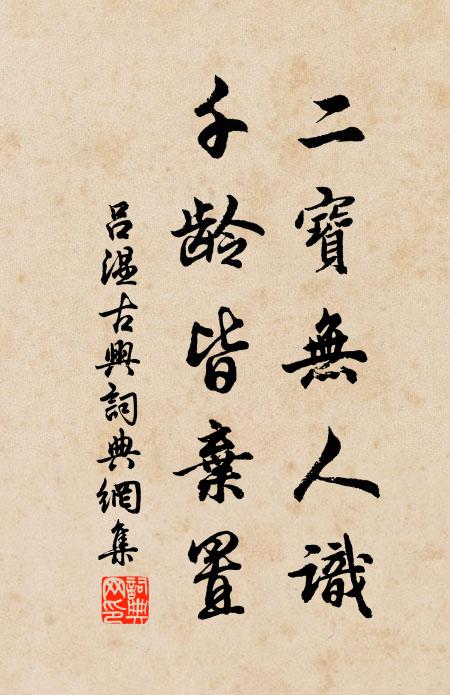 二寶無人識
千齡皆棄置
吕溫古興詞典網集
詞典网印